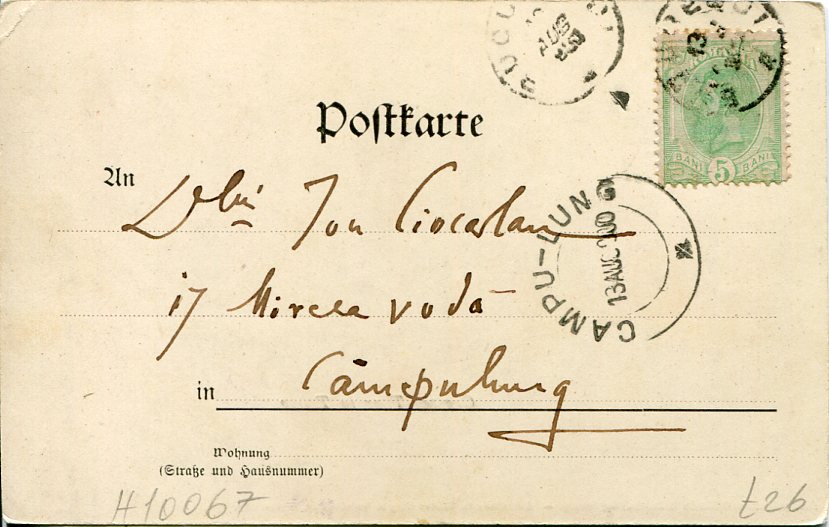 Postkarte
An
Dlui Ion Ciocarlan
17 Mircea vodă
in Câmpulung
Wohnung
(Straße und Hausnummer)
BANI 5 BANI
CAMPU-LUNG
13 AUG
H10067
t26